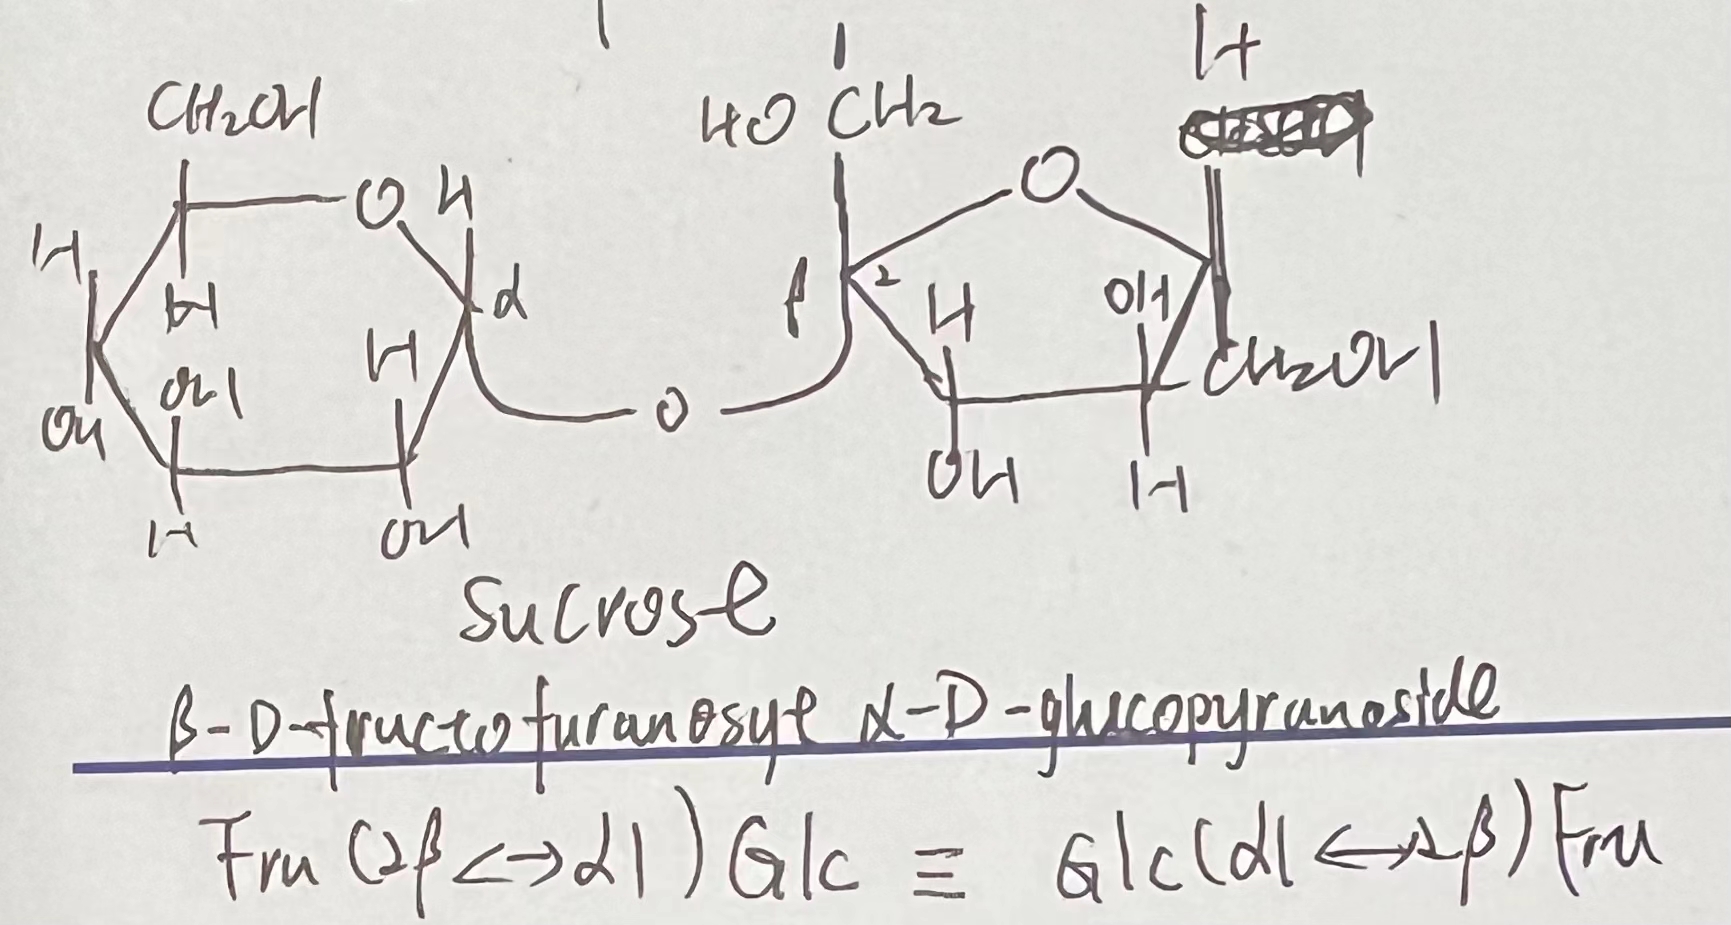 H
CH₂OH HO CH₂
O H O
H α β 2 H OH
H H
OH OH O CH₂OH
H OH OH H
Sucrose
β-D-fructofuranosyl α-D-glucopyranoside
Fru (2β<->α1) Glc ≡ Glc(α1<->2β) Fru